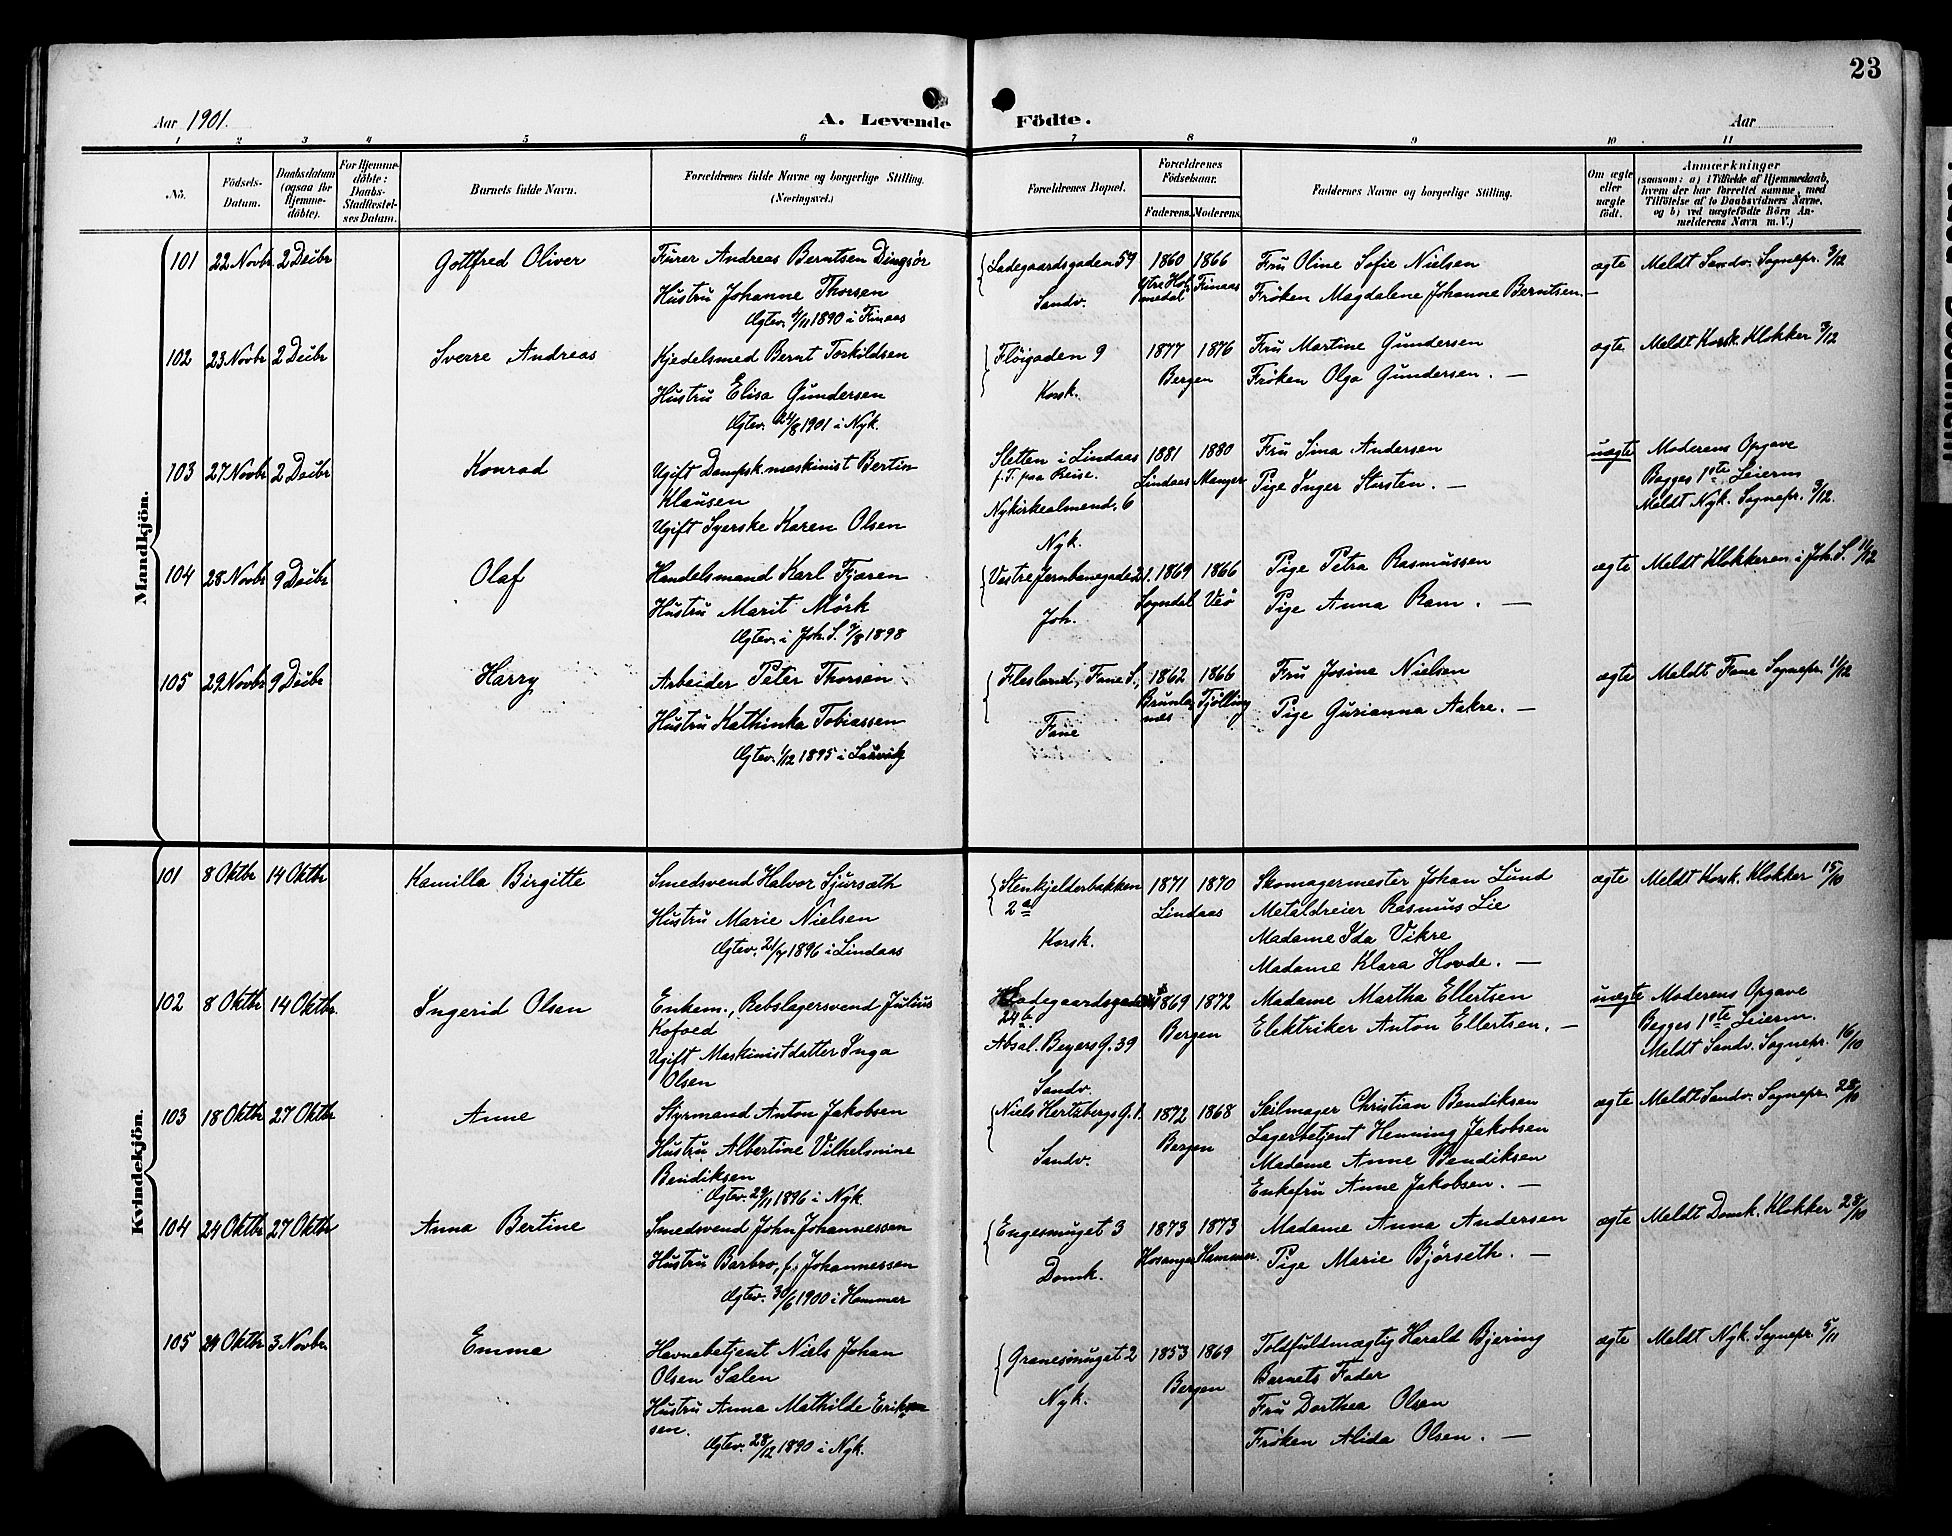 23
Aar 1901.
A. Levende Födte.
Aar
1 2 3 4 5 6 7 8 9 10 11
No.
Födsels-Datum.
Daabsdatum (ogsaa for Hjemme-döbte).
For Hjemme-döbte: Daabs-Stadfæstel-ses Datum.
Barnets fulde Navn.
Forældrenes fulde Navne og borgerlige Stilling. (Næringsvei.)
Forældrenes Bopæl.
Forældrenes Födselsaar.
Faderens. Moderens.
Faddernes Navne og borgerlige Stilling.
Om ægte eller uægte födt.
Anmærkninger
(saasom: a) i Tilfælde af Hjemmedaab,
hvem der har forrettet samme, med
Tilföielse af to Daabsvidners Navne,
og b) ved uægtefödte Börn An-
melderens Navn m. V.)
Mandkjön.
101 22 Novbr 2 Decbr Gottfred Oliver
Furer Andreas Berntsen Dingsör
Hustru Johanne Thorsen
Ægtev. 4/11 1890 i Finaas
Ladegaardsgaden 59
Sandv.
1860 1866
Ytre Hol-
medal Finaas
Fru Oline Sofie Nielsen
Frøken Magdalene Johanne Berntsen. —
ægte Meldt Sandv. Sognepr. 3/12
102 23 Novbr 2 Decbr Sverre Andreas
Kjedelsmed Bernt Torkildsen
Hustru Elisa Gundersen
Ægtev. 24/8 1901 i Nyk.
Fløigaden 9
Korsk.
1877 1876
Bergen
Fru Martine Gundersen
Frøken Olga Gundersen. —
ægte Meldt Korsk. Klokker 3/12
103 27 Novbr 2 Decbr Konrad
Ugift Dampsk.maskinist Bertin
Klausen
Ugift Syerske Karen Olsen
Sletten i Lindaas
f. T. paa Reise.
Nykirkealmend. 6
Nyk.
1881 1880
Lindaas Manger
Fru Sina Andersen
Pige Inger Storsten. —
uægte Moderens Opgave
Begges 1ste Leierm
Meldt Nyk. Sognepr. 3/12.
104 28 Novbr 9 Decbr Olaf
Handelsmand Karl Fjæren
Hustru Marit Mörk
Ægtev. i Joh. S. 7/8 1898
Vestre Jernbanegade 21.
Joh.
1869 1866
Sogndal Veö
Pige Petra Rasmussen
Pige Anna Ram. —
ægte Meldt Klokkeren i Joh. S. 11/12
105 29 Novbr 9 Decbr Harry
Arbeider Peter Thorsen
Hustru Kathinka Tobiassen
Ægtev. 1/12 1895 i Laurvik
Flesland, Fane S.,
Fane
1862 1866
Brunla-
nes Tjølling
Fru Josine Nielsen
Pige Gurianna Aakre. —
ægte Meldt Fane Sognepr. 11/12
Kvindekjön.
101 8 Oktbr 14 Oktbr Kamilla Birgitte
Smedsvend Halvor Sjursæth
Hustru Marie Nielsen
Ægtev. 21/7 1896 i Lindaas
Stenkjelderbakken
2a
Korsk.
1871 1870
Lindaas
Skomagermester Johan Lund
Metaldreier Rasmus Lie
Madame Ida Vikre
Madame Klara Hovde. —
ægte Meldt Korsk. Klokker 15/10
102 8 Oktbr 14 Oktbr. Ingerid Olsen
Enkem., Rebslagersvend Julius
Kofoed
Ugift Maskinistdatter Inga
Olsen
Ladegaardsgaden
24b.
Absal. Beyers G. 39
Sandv
1869 1872
Bergen
Madame Martha Ellertsen
Elektriker Anton Ellertsen. —
uægte Moderens Opgave
Begges 1ste Leierm.
Meldt Sandv. Sognepr. 16/10
103 18 Oktbr 27 Oktbr Anne
Styrmand Anton Jakobsen
Hustru Albertine Vilhelmine
Bendiksen
Ægtev. 29/11 1896 i Nyk.
Niels Hertzbergs G. 1.
Sandv.
1872 1868
Bergen
Seilmager Christian Bendiksen
Lagerbetjent Henning Jakobsen
Madame Anne Bendiksen
Enkefru Anne Jakobsen. —
ægte Meldt Sandv. Sognepr. 28/10
104 24 Oktbr 27 Oktbr Anna Bertine
Smedsvend John Johannessen
Hustru Barbro, f. Johannessen
Ægtev. 30/6 1900 i Hammer
Engesmuget 3
Domk.
1873 1873
Hosanger Hammer.
Madame Anna Andersen
Pige Marie Bjørseth. —
ægte Meldt Domk. Klokker 28/10
105 24 Oktbr 3 Novbr Emma
Havnebetjent Niels Johan
Olsen Salen
Hustru Anna Mathilde Erik-
sen.
Ægtev. 28/12 1890 i Nyk.
Granesmuget 2
Nyk.
1853 1869
Bergen
Toldfuldmægtig Harald Bjering
Barnets Fader
Fru Dorthea Olsen
Frøken Alida Olsen. —
ægte Meldt Nyk. Sognepr. 5/11